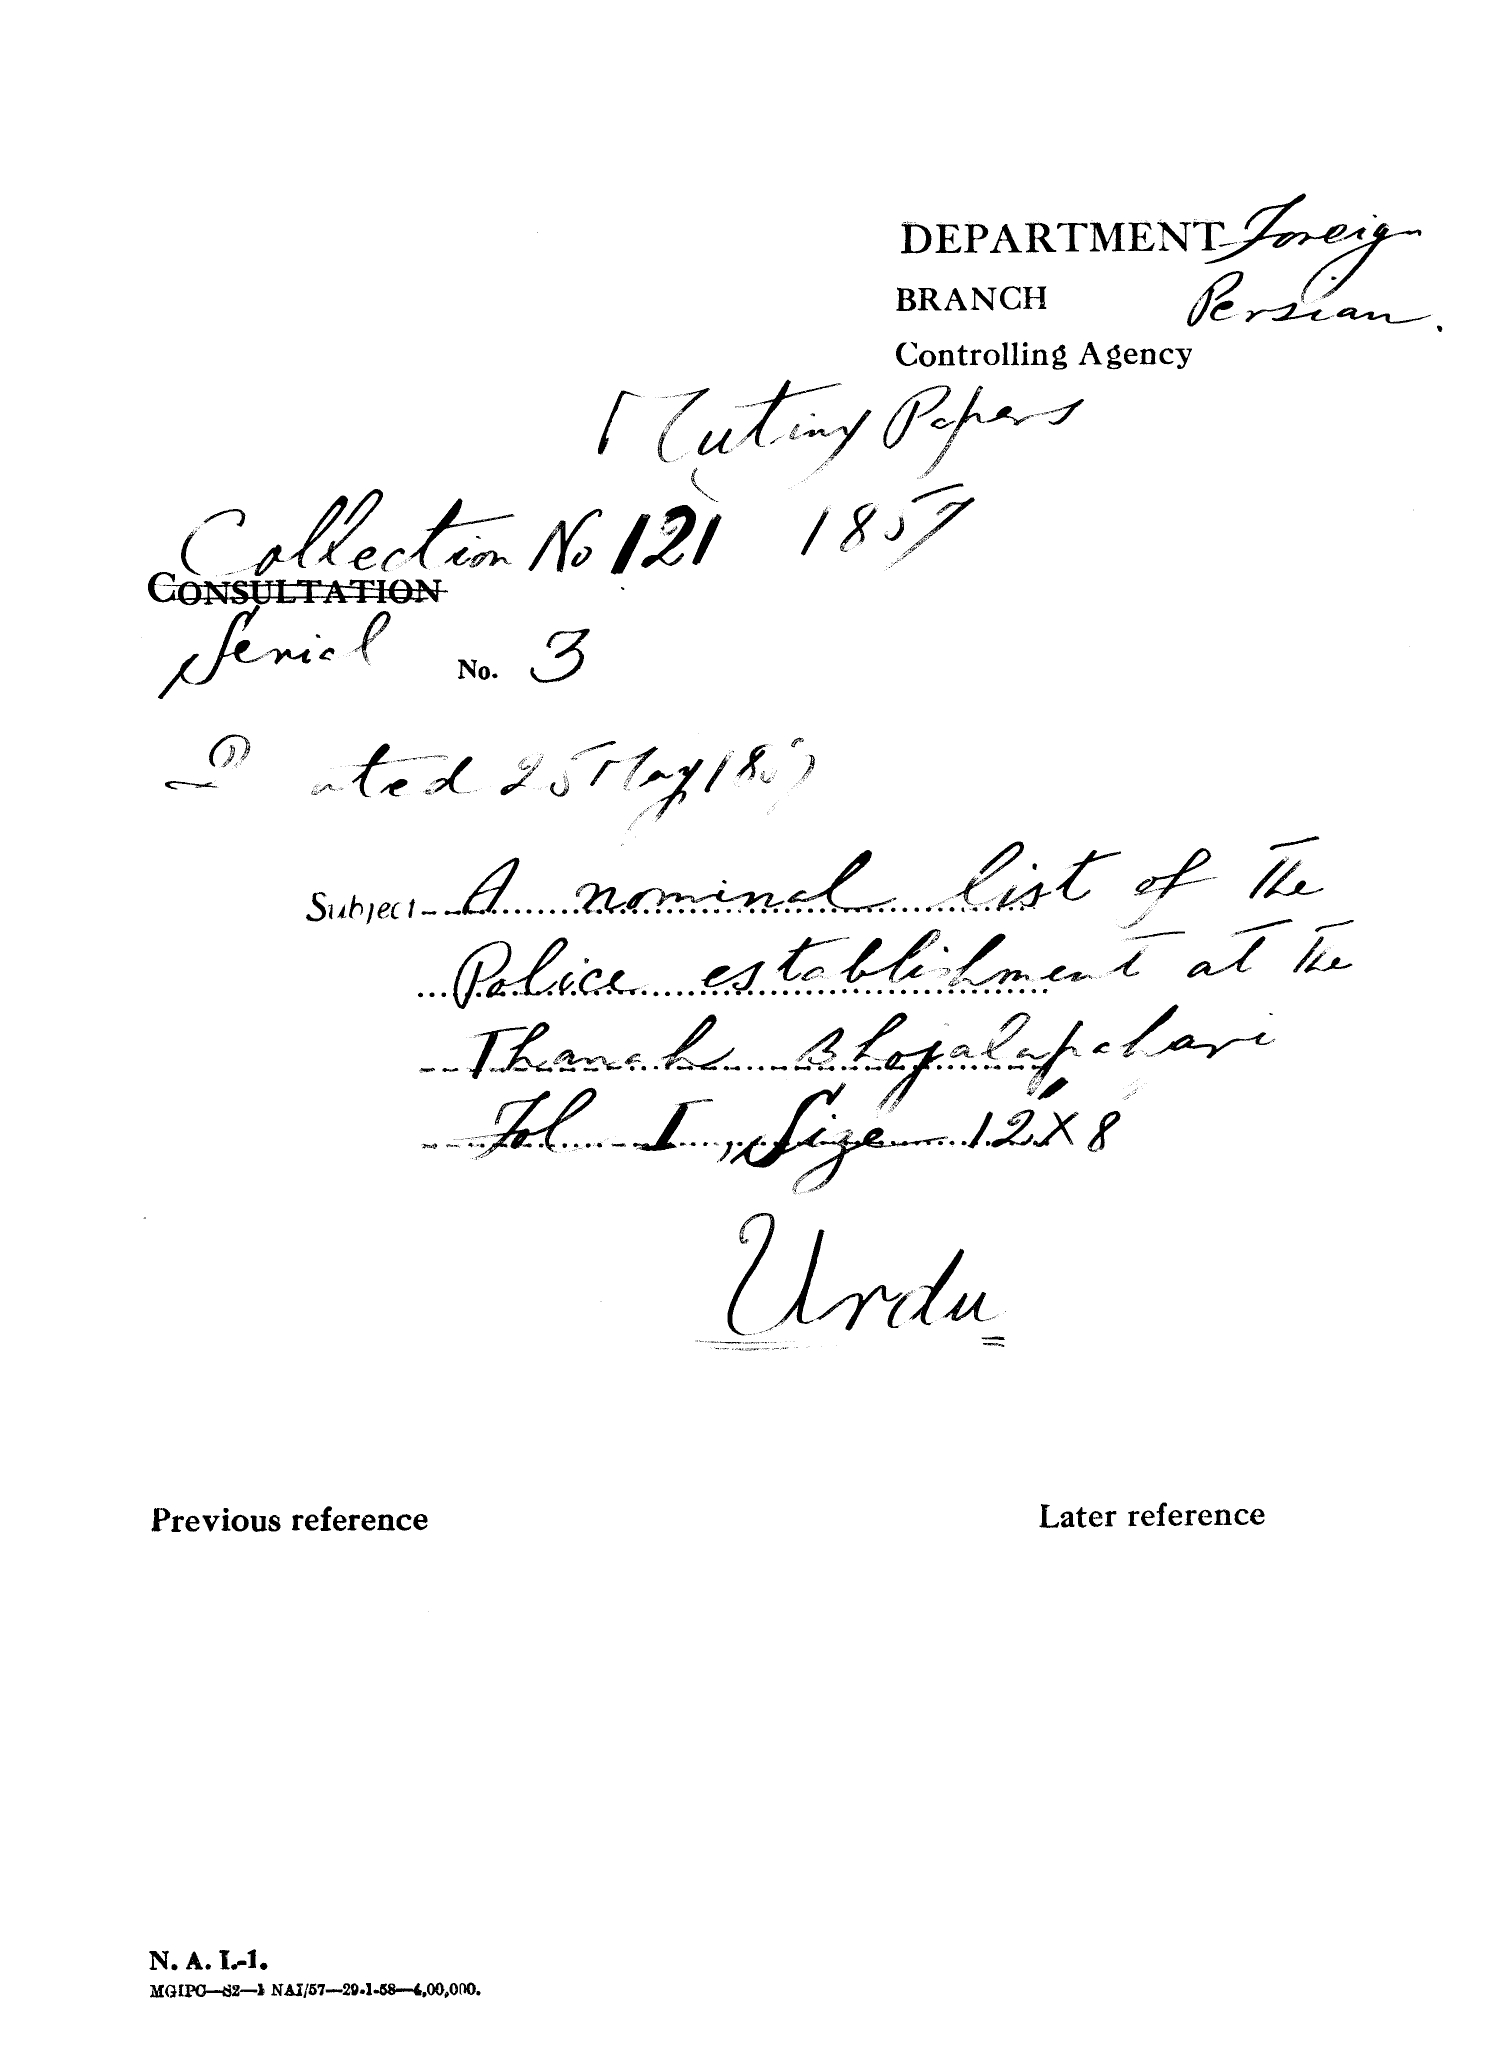 DEPARTMENT Foreign
BRANCH Persian.
Controlling Agency
Mutiny Papers
Collection No 121 1857
CONSULTATION
Serial No. 3
Dated 25 May 1857
Subject A nominal list of The
Police establishment at The
Thanah Bhojalapahari
Fol I, Size 12" X 8"
Urdu
Previous reference Later reference
N. A. I.-1.
MGIPC—S2—1 NAI/57—29-1-58—4,00,000.